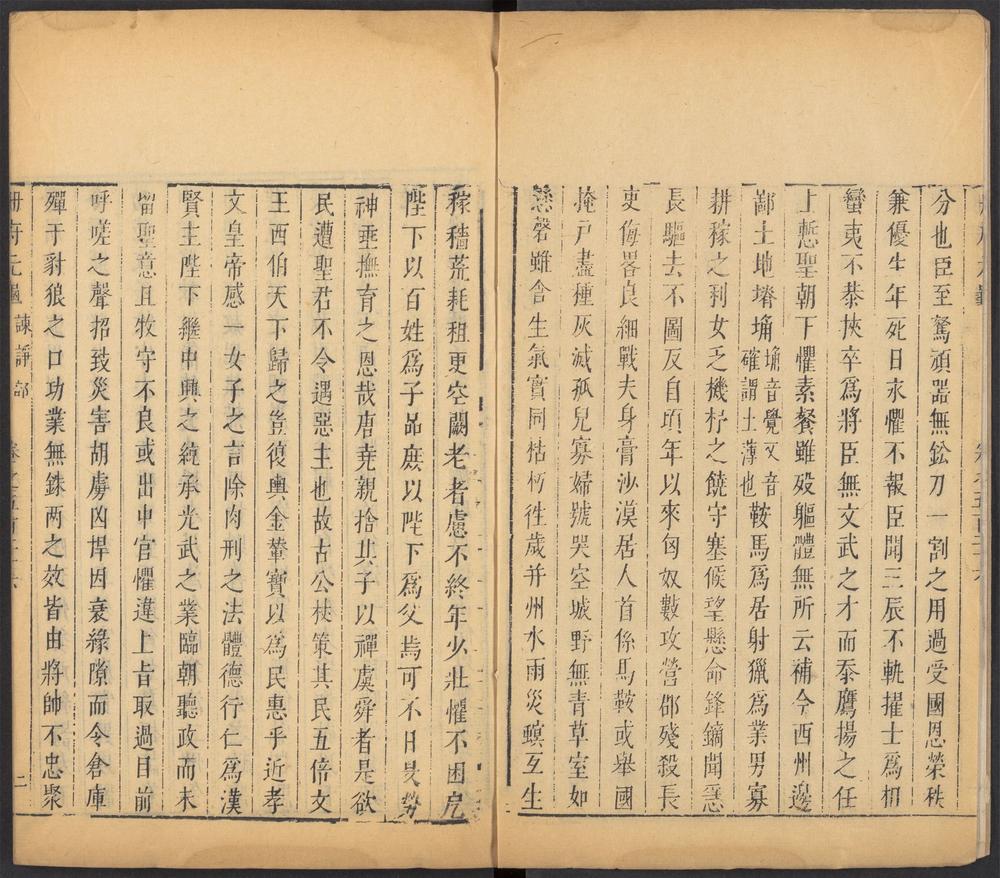 分也臣至駑頑器無鈆刀一割之用過受國恩榮秩
兼優生年死日永懼不報臣聞三辰不軌擢士為相
蠻夷不恭㧱卒為將臣無文武之才而忝鷹揚之任
上慙聖朝下懼素餐雖歿軀體無所云補今西州邊
鄙土地塉埆埆音覺又音確謂土薄也鞍馬為居射獵為業男寡
耕稼之利女乏機杼之饒守塞候望懸命鋒鏑聞急
長驅去不圖反自頃年以來匈奴數攻營郡殘殺長
吏侮畧良細戰夫身膏沙漠居人首係馬鞍或舉國
掩戸盡種灰滅孤兒寡婦號哭空城野無青草室如
懸磬雖含生氣實同枯朽徃歲并州水雨災螟互生
稼穡荒耗租更空闕老者慮不終年少壯懼不困戹
陛下以百姓為子品庶以陛下為父焉可不日昃勞
神垂撫育之恩哉唐堯親捨其子以禪虞舜者是欲
民遭聖君不令遇惡主也故古公杖策其民五倍文
王西伯天下歸之豈復輿金輦寶以為民惠乎近孝
文皇帝感一女子之言除肉刑之法體德行仁為漢
賢主陛下繼中興之統承光武之業臨朝聽政而未
留聖意且牧守不良或出中官懼違上旨取過目前
呼嗟之聲招致災害胡虜凶悍因衰緣隙而令倉庫
殫于豺狼之口功業無銖兩之效皆由將帥不忠聚
冊府元龜 諫諍部 二